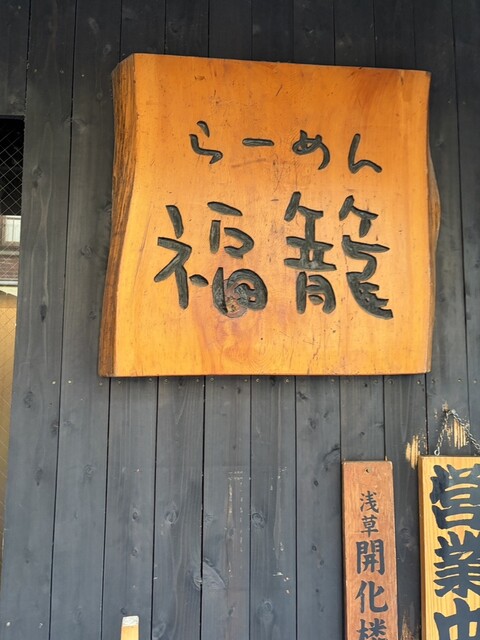 らーめん
福籠
浅草
開化楼
営業中